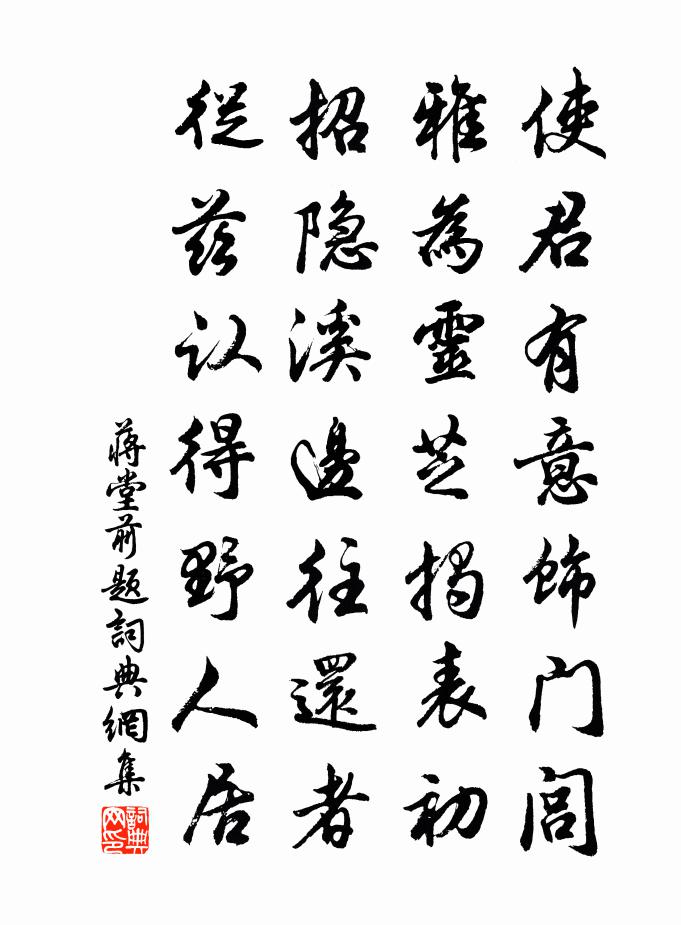 使君有意飾门闾
雅為靈芝揭表初
招隐溪邊往還者
從兹认得野人居
蒋堂前题詞典網集
詞典网印